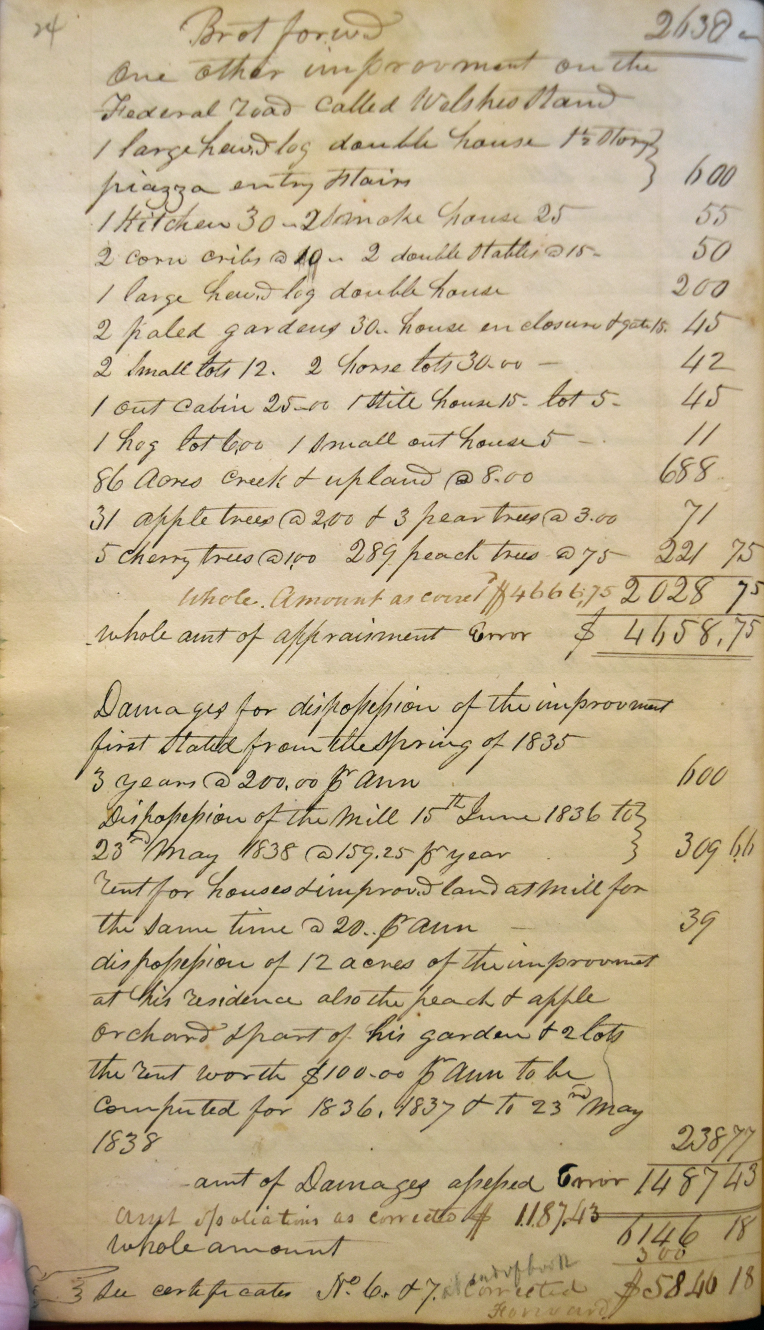 24 Brot forwd 2630
One other improvment on the
Federal road called Welshes Stand
1 large hew.d log double house 1½ Story
piazza entry stairs 600
1 Kitchen 30 .. 2 Smoke house 25 55
2 corn cribs @ 10 .. 2 double stables @ 15 - 50
1 large hew.d log double house 200
2 paled gardens 30 .. house enclosure & gate 15. 45
2 Small lots 12. 2 horse lots 30.00 - 42
1 out cabin 25.00 1 Still house 15 - lot 5 - 45
1 hog lot 6,00 1 Small out house 5 - 11
86 Acres Creek & upland @ 8.00 688
31 apple trees @ 2,00 & 3 pear trees @ 3.00 71
5 cherry trees @ 1,00 289 peach trees @ 75 221 75
Whole Amount as corec.d $4666,75 2028 75
whole amt of appraisment Error $ 4658.75
Damages for dispossession of the improvment
first Stated from the Spring of 1835
3 years @ 200.00 pr Ann 600
Dispossession of the Mill 15th June 1836 to
23rd May 1838 @ 159.25 pr year 309 66
rent for houses & improv.d land at mill for
the same time @ 20 .. pr ann - 39
dispossession of 12 acres of the improvmet
at his residence also the peach & apple
Orchard & part of his garden & 2 lots
the rent worth $100.00 pr Ann to be
Computed for 1836. 1837 & to 23rd May
1838 238 77
amt of Damages assessed Error 1487 43
Amt spoliations as corrected $ 1187.43
whole amount 6146 18
300
See certificates No. 6. & 7. at end of book Corrected $5846 18
Forward